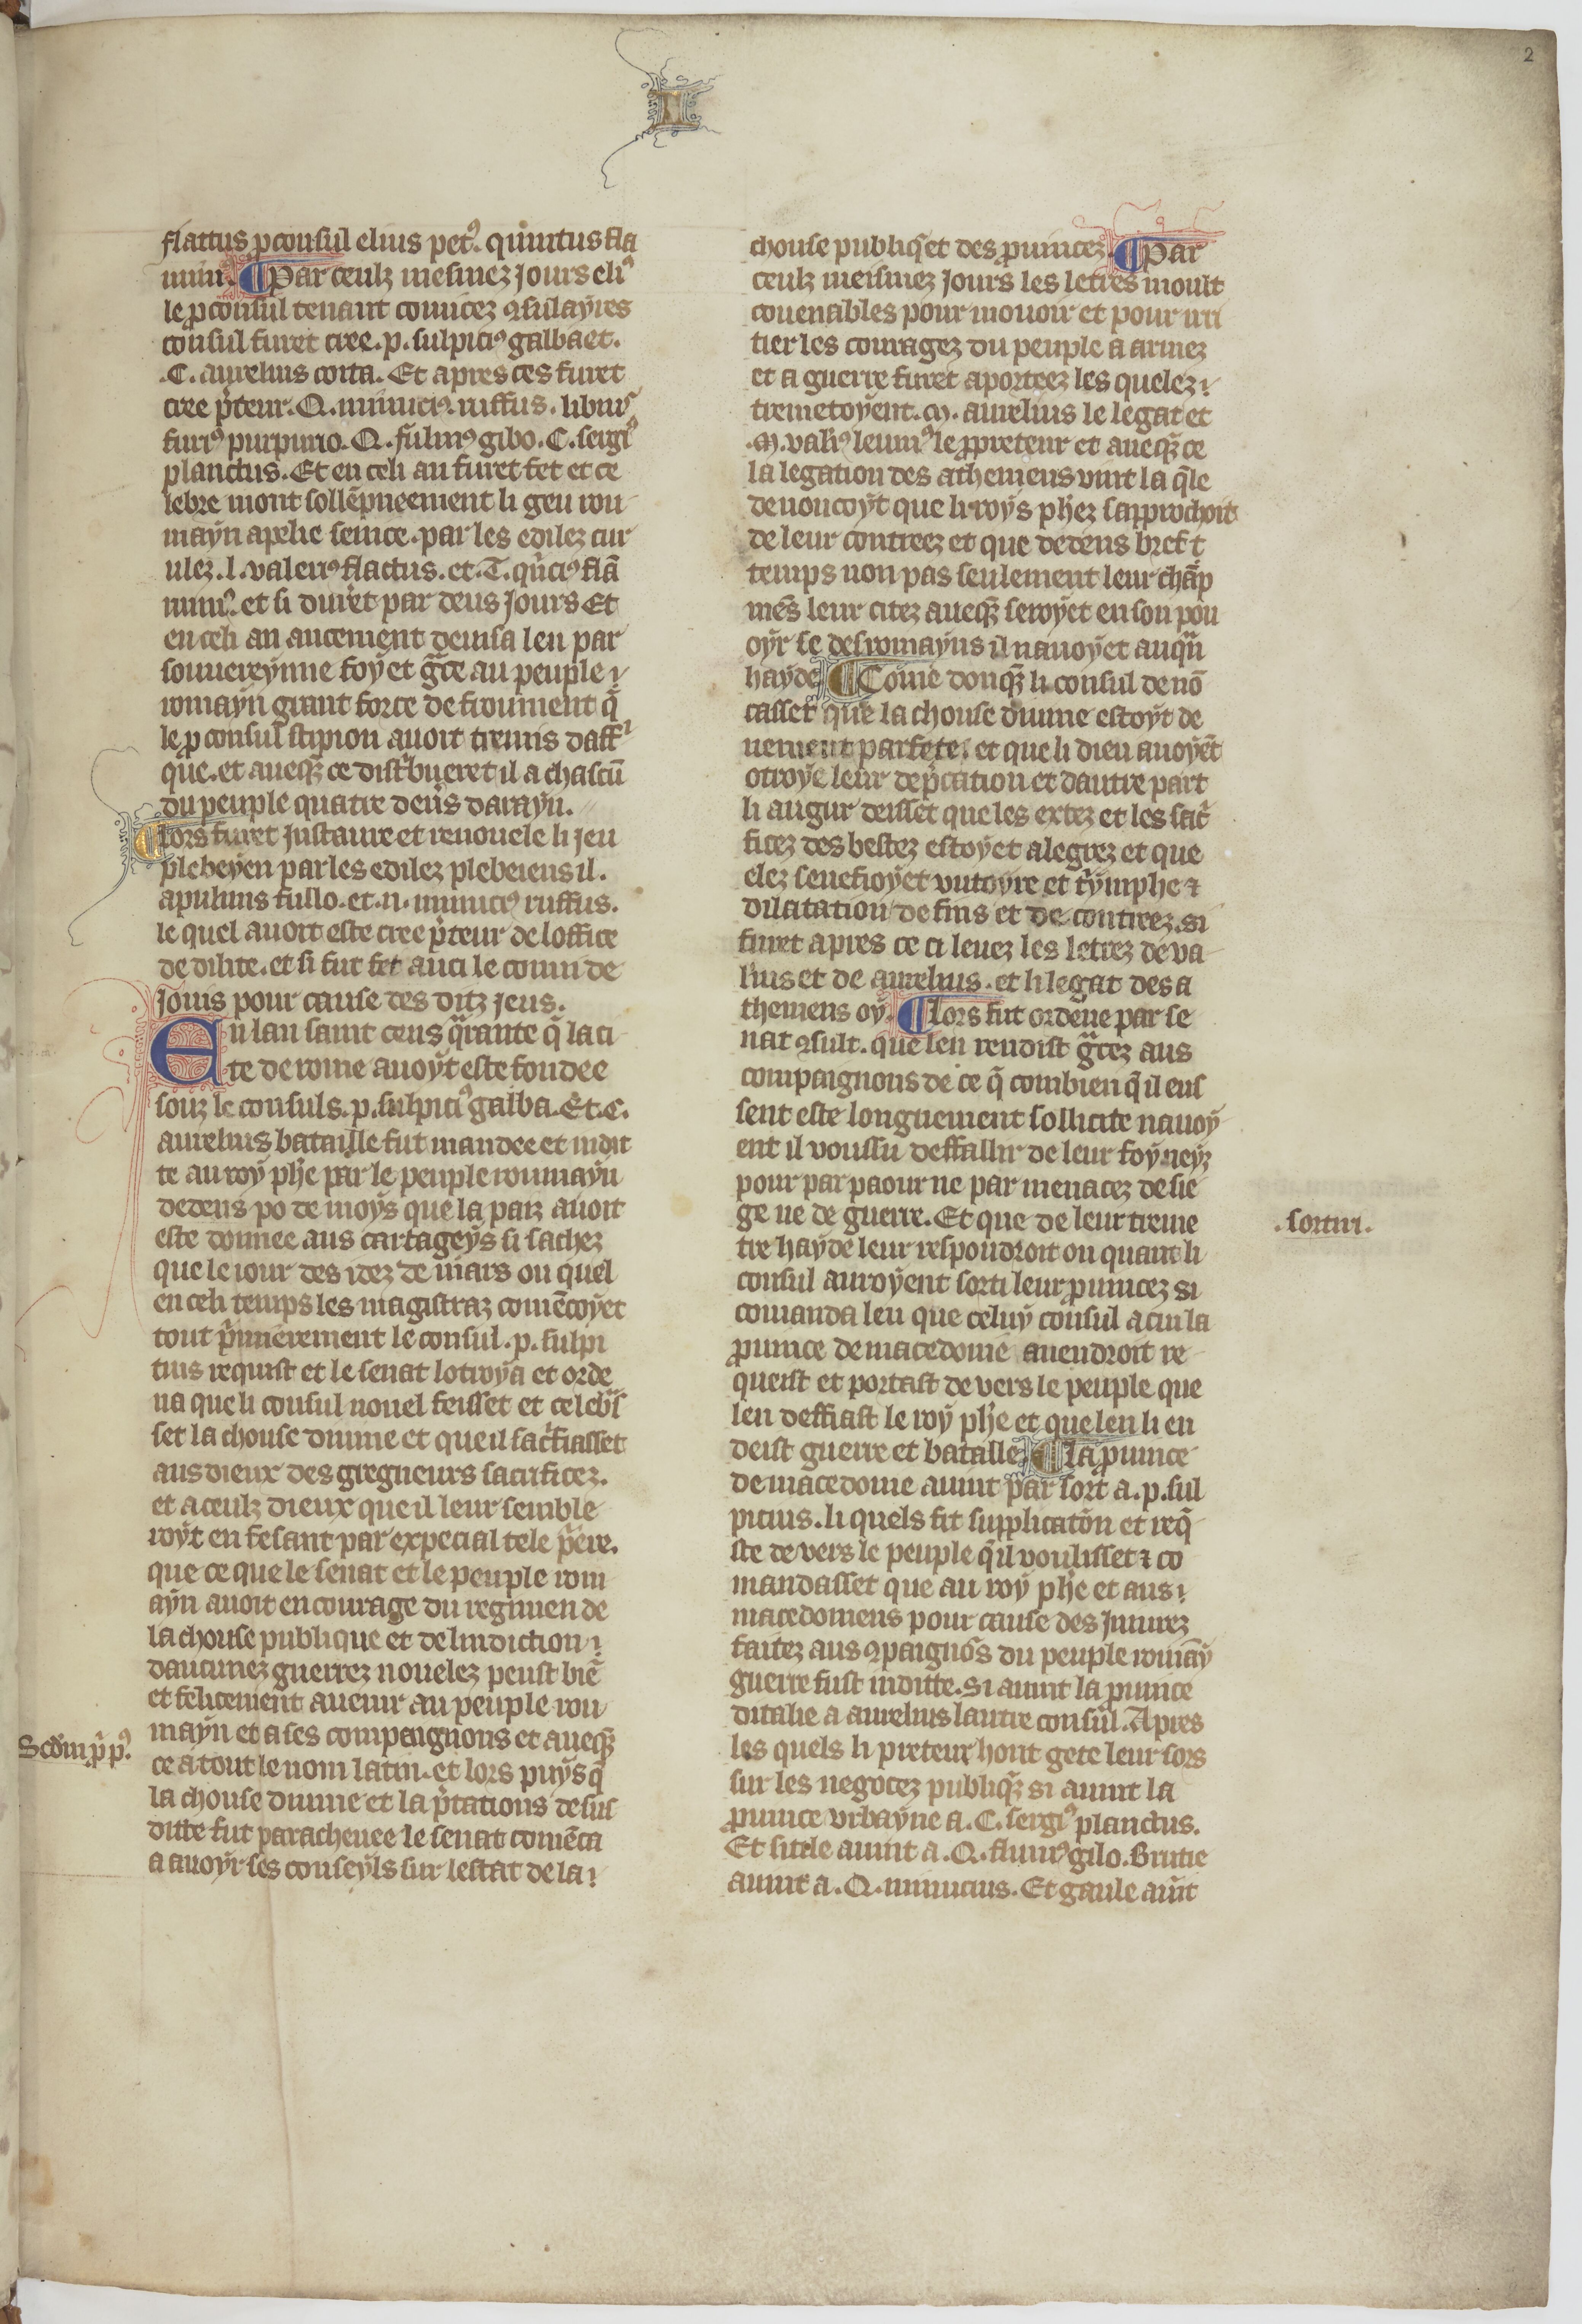 2
II
flattus ꝓconsul elius pet᷒. quintus fla
mini᷒. ¶ Par ceulz mesmez jours eli᷒
le ꝓconsul tenant comicez ꝯsulayres
consul furēt cree .p. sulpici᷒ galba et.
.C. aurelius cotta. Et apres ces furēt
cree p̄teur. Q. minuci᷒ ruffus. libri᷒
furi᷒ purpurio. Q. fului᷒ gibo. C. sergi᷒
planctus. Et en celi an furēt fet et ce
lebre mont sollēpneement li geu rou
mayn apelle senice. par les edilez cur
ulez .l. valeri᷒ flactus. et .T. quīci᷒ flā
mini᷒. et si durēt par deus jours Et
en celi an aucement deuisa len par
souuereynne foy et grāce au peuple
romayn grant force de froument q̄
le ꝓconsul scipion auoit tremis daffⁱ
que. et auecq̄ ce distⁱbuerēt il a chascū
du peuple quatre den̄s darayn.
¶ lors furēt justaure et renouele li jeu
plebeyen par les edilez plebeiens .l.
apulius fullo. et .n. minuci᷒ ruffus.
le quel auoit este cree p̄teur de loffice
de dilite. et si fut fet auci le comū de
jouis pour cause des ditz jeus.
En lan saint cens q̄rante q̄ la ci
te de rome auoyt este fondee
souz le consuls .p. sulpici᷒ galba. Et .C.
aurelius bataille fut mandee et indit
te au roy phē par le peuple roumayn
dedens po de moys que la paiz auoit
este donnee aus cartageys si sachez
que le iour des ydez de mars ou quel
en celi temps les magistraz comēcoyēt
tout p̄mierement le consul .p. sulpi
tius requist et le senat lotroya et orde
na que li consul nouel feissēt et celebᵃs
sēt la chouse diuine et que il sacⁱfiassēt
aus dieux des gregneurs sacrificez.
et a ceulz dieux que il leur semble
royt en fesant par expecial tele p̄iere.
que ce que le senat et le peuple rom
ayn auoit en courage du regimen de
la chouse publique et de lindiction
daucunez guerrez nouelez peust biē
et felicement auenir au peuple rou
mayn et a ses compaignons et auecq̄
ce a tout le nom latin. et lors puys q̄
la chouse diuine et la p̄tations de sus
ditte fut paracheuee le senat comēca
a auoyr ses conseyls sur lestat de la
Scdm ꝑ p᷒.
chouse publiq̄ et des ꝓuincez. ¶ Par
ceulz meismez jours les letres moult
couenables pour mouoir et pour uri
tier les couragez du peuple a armez
et a guerre furēt aporteez les quelez
tremetoyent .M. aurelius le legat et
.M. valīi᷒ leuini᷒ le ꝓpreteur et auecq̄ ce
la legation des atheniens vint la q̄le
denoncoyt que li roys phēz sapprochoit
de leur contreez et que dedens bref t
temps non pas seulement leur chāp
mēs leur citez auecq̄ seroyēt en son pou
oyr se des romayns il nauoyēt auqū
hayde. ¶ Come donqz̄ li consul denō
cassēt que la chouse diuine estoyt de
uement parfete. et que li dieu auoyēt
otroye leur dep̄cation et dautre part
li augur deissēt que les extez et les sacⁱ
ficez des bestez estoyēt alegrez et que
elez senefioyēt victoyre et tⁱymphe ⁊
dilatation de fins et de contreez. si
furēt apres ce ci leuez les letrez de va
lⁱius et de aurelius. et li legat des a
theniens oy. ¶ lors fut ordene par se
nat ꝯsult. que len rendist grācez aus
compaignons de ce q̄ combien q̄ il eus
sent este longuement sollicite nauoy
ent il voussu deffallir de leur foy neyz
pour par paour ne par menacez de sie
ge ne de guerre. Et que de leur treme
tre hayde leur respondroit on quant li
consul auroyent sorti leur ꝓuincez si
comanda len que celuy consul a cui la
ꝓuince de macedonie auendroit re
queist et portast de vers le peuple que
len deffiast le roy phē et que len li en
deist guerre et bataille. ¶ la ꝓuince
de macedonie auint par sort a .p. sul
picius. li quels fit supplicatōn et req̄
ste de vers le peuple q̄ il voulissēt ⁊ co
mandassēt que au roy phē et aus
macedoniens pour cause des juiurez
faitez aus ꝯpaignōs du peuple romāy
guerre fust inditte. si auint la ꝓuince
ditalie a aurelius lautre consul. Apres
les quels li preteur hont gete leur sors
sur les negocez publiqz̄ si auint la
ꝓuince vrbayne a .C. sergi᷒ planctus.
Et sicile auint a .Q. fluui᷒ gilo. Brutie
auint a .Q. minucius. Et gaule auīt
.sortiri.